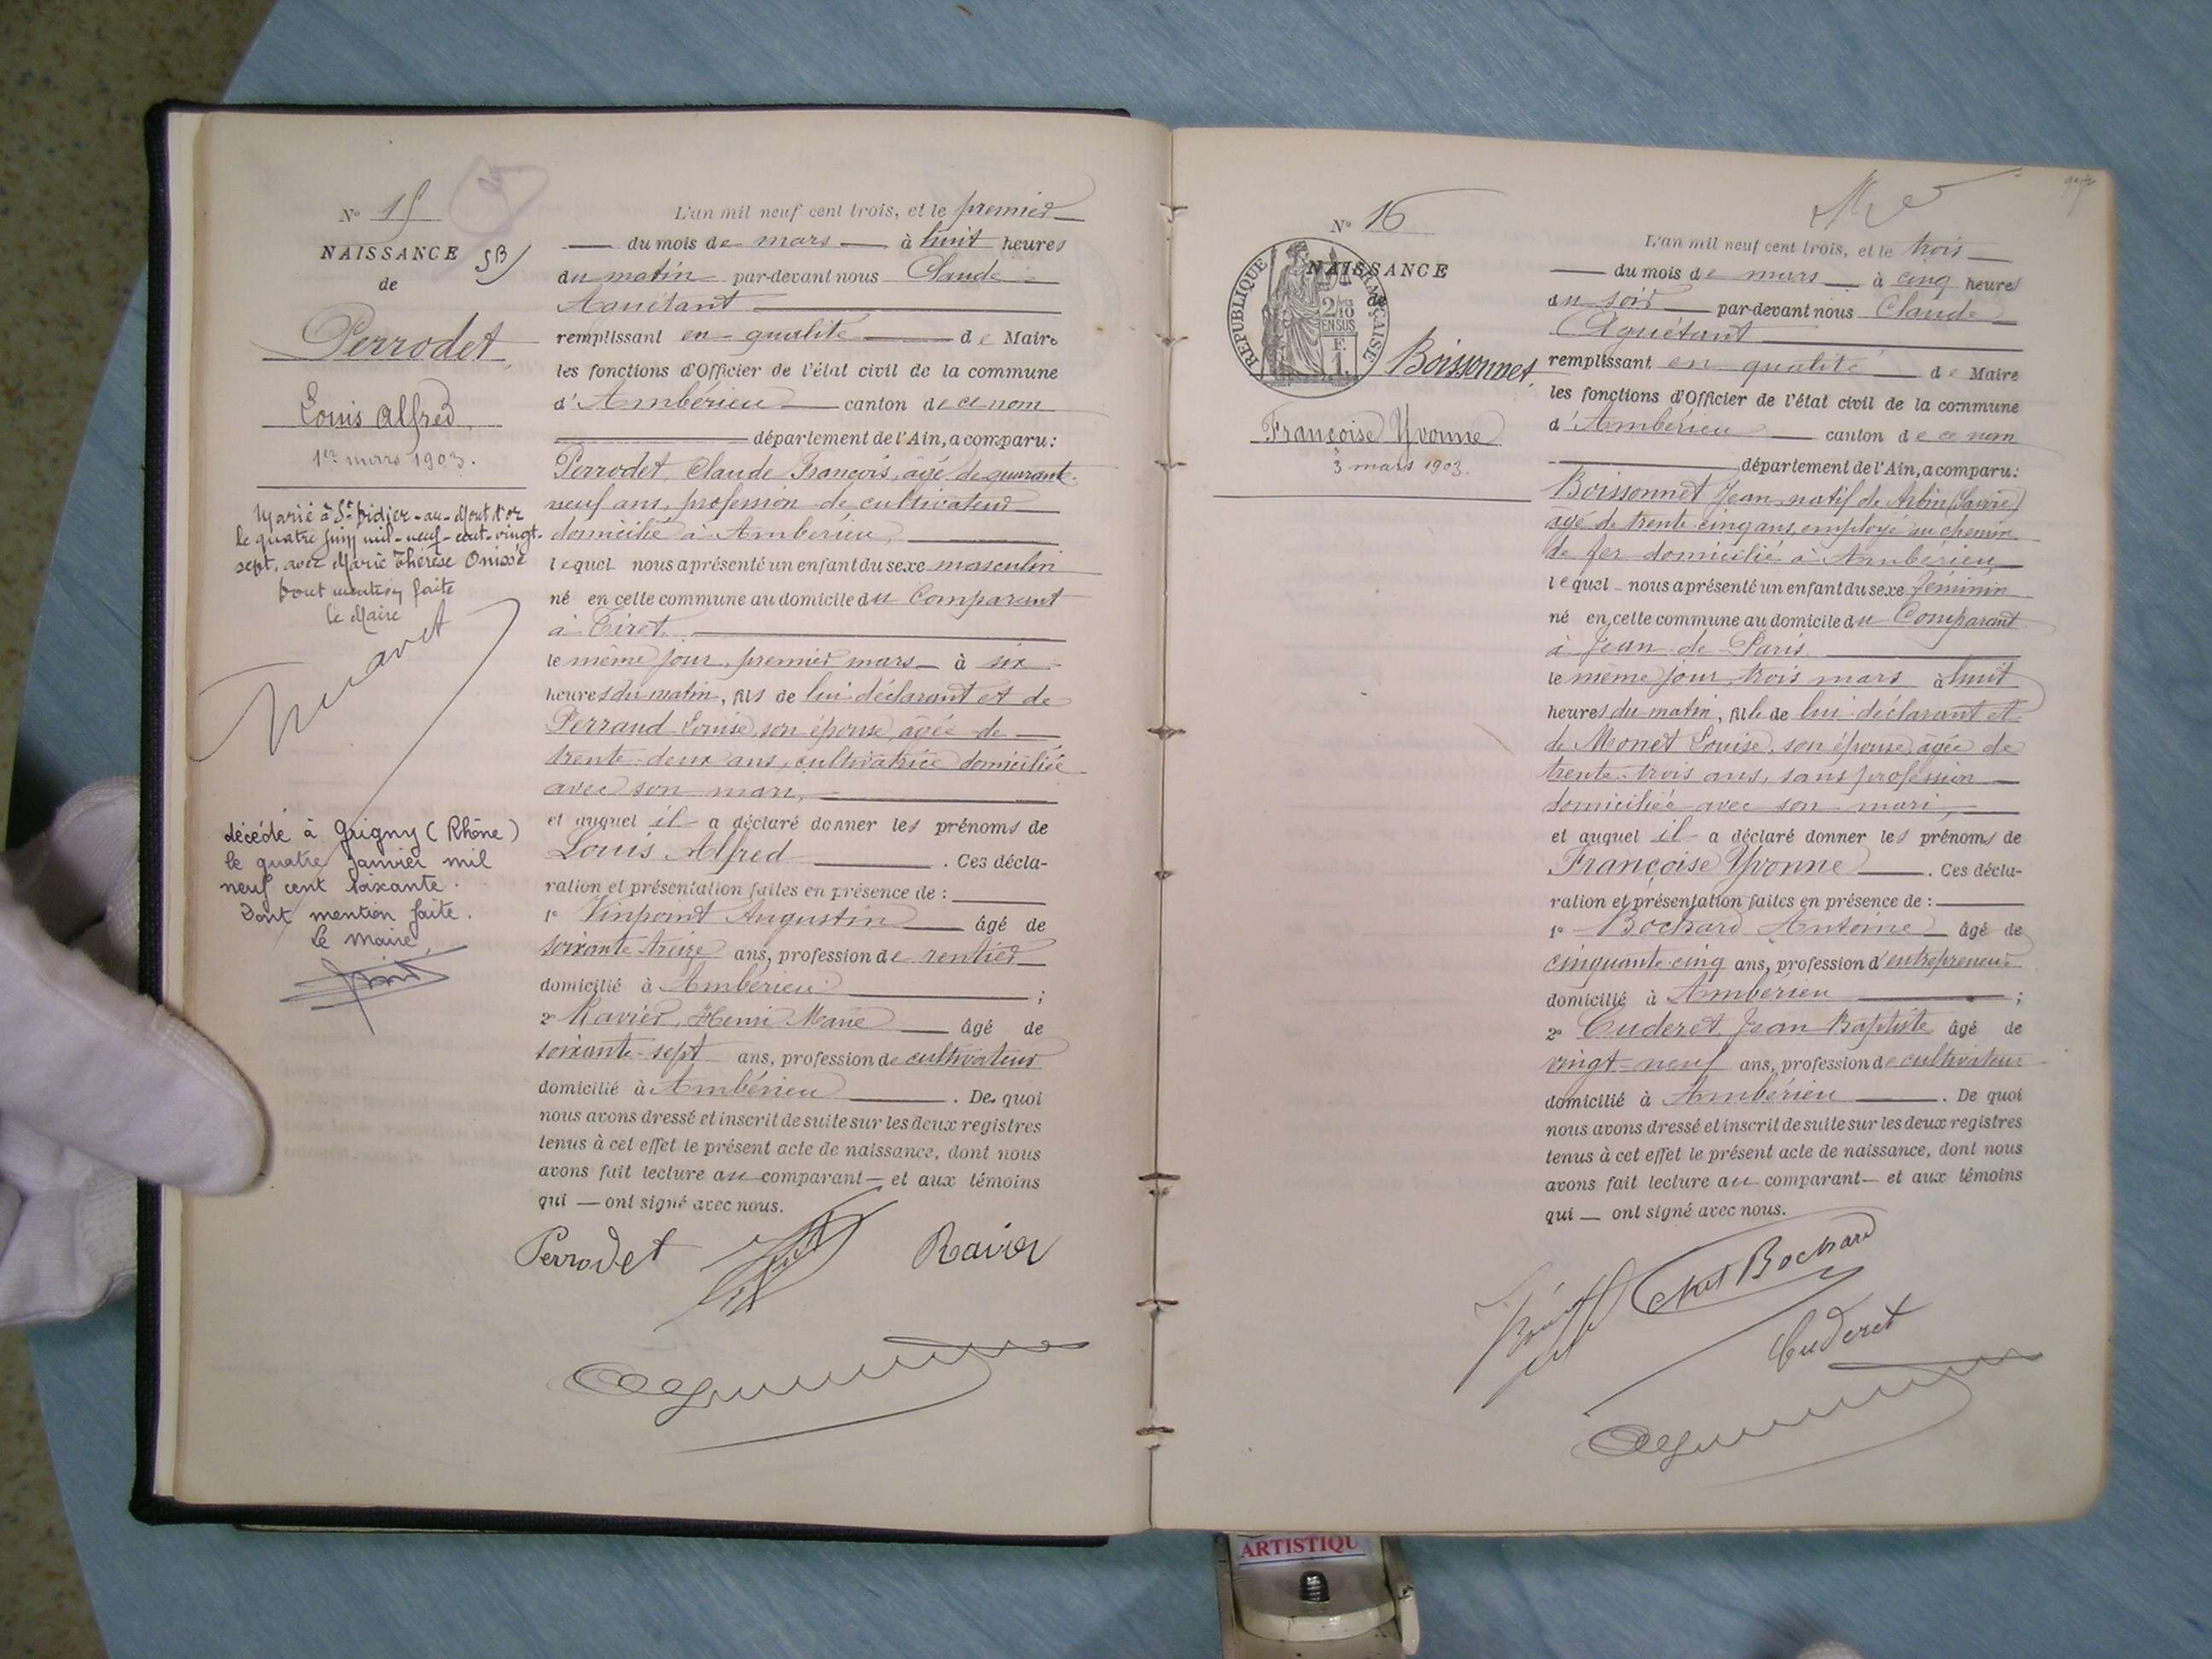 Nº 15
NAISSANCE
de
Perrodet
Louis Alfred
1er mars 1903.
Marié à St Didier-au-Mont d'or
le quatre juin mil-neuf-cent-vingt-
sept, avec Marie Thérèse Onissé
Dont mention faite
le Maire
décédé à Grigny (Rhône)
le quatre Janvier mil
neuf cent soixante.
Dont mention faite.
le Maire,
L'an mil neuf cent trois, et le premier
du mois de mars à huit heures
du matin par-devant nous Claude
Aguétant
remplissant en qualité de Maire
les fonctions d'Officier de l'état civil de la commune
d'Ambérieu canton de ce nom
département de l'Ain, a comparu:
Perrodet, Claude François, âgé de quarante-
neuf ans, profession de cultivateur
domicilié à Ambérieu,
lequel nous a présenté un enfant du sexe masculin
né en cette commune au domicile du Comparant
à Tiret.
le même jour, premier mars à six
heures du matin, fils de lui déclarant et de
Perraud Louise, son épouse, âgée de
trente-deux ans, cultivatrice domiciliée
avec son mari,
et auquel il a déclaré donner les prénoms de
Louis Alfred. Ces décla-
ration et présentation faites en présence de :
1º Vinpoint Augustin âgé de
soixante-treize ans, profession de rentier
domicilié à Ambérieu ;
2º Ravier, Henri Marie âgé de
soixante-sept ans, profession de cultivateur
domicilié à Ambérieu. De quoi
nous avons dressé et inscrit de suite sur les deux registres
tenus à cet effet le présent acte de naissance, dont nous
avons fait lecture au comparant et aux témoins
qui ont signé avec nous.
Perrodet
Ravier
Nº 16
NAISSANCE
de
REPUBLIQUE FRANÇAISE
2/10 EN SUS
F. 1
Boissonnet
Françoise Yvonne
3 mars 1903.
L'an mil neuf cent trois, et le trois
du mois de mars à cinq heures
du soir par-devant nous Claude
Aguétant
remplissant en qualité de Maire
les fonctions d'Officier de l'état civil de la commune
d'Ambérieu canton de ce nom
département de l'Ain, a comparu:
Boissonnet Jean natif de Arbin (Savoie)
âgé de trente-cinq ans, employé au chemin
de fer domicilié à Ambérieu
lequel nous a présenté un enfant du sexe féminin
né en cette commune au domicile du Comparant
à Jean de Paris.
le même jour, trois mars à huit
heures du matin, fille de lui déclarant et
de Monet Louise, son épouse, âgée de
trente-trois ans, sans profession
domiciliée avec son mari,
et auquel il a déclaré donner les prénoms de
Françoise Yvonne. Ces décla-
ration et présentation faites en présence de :
1º Bochard Antoine âgé de
cinquante-cinq ans, profession d'entrepreneur
domicilié à Ambérieu ;
2º Cuderet, Jean Baptiste, âgé de
vingt-neuf ans, profession de cultivateur
domicilié à Ambérieu. De quoi
nous avons dressé et inscrit de suite sur les deux registres
tenus à cet effet le présent acte de naissance, dont nous
avons fait lecture au comparant et aux témoins
qui ont signé avec nous.
Bochard
Cuderet
ARTISTIQU